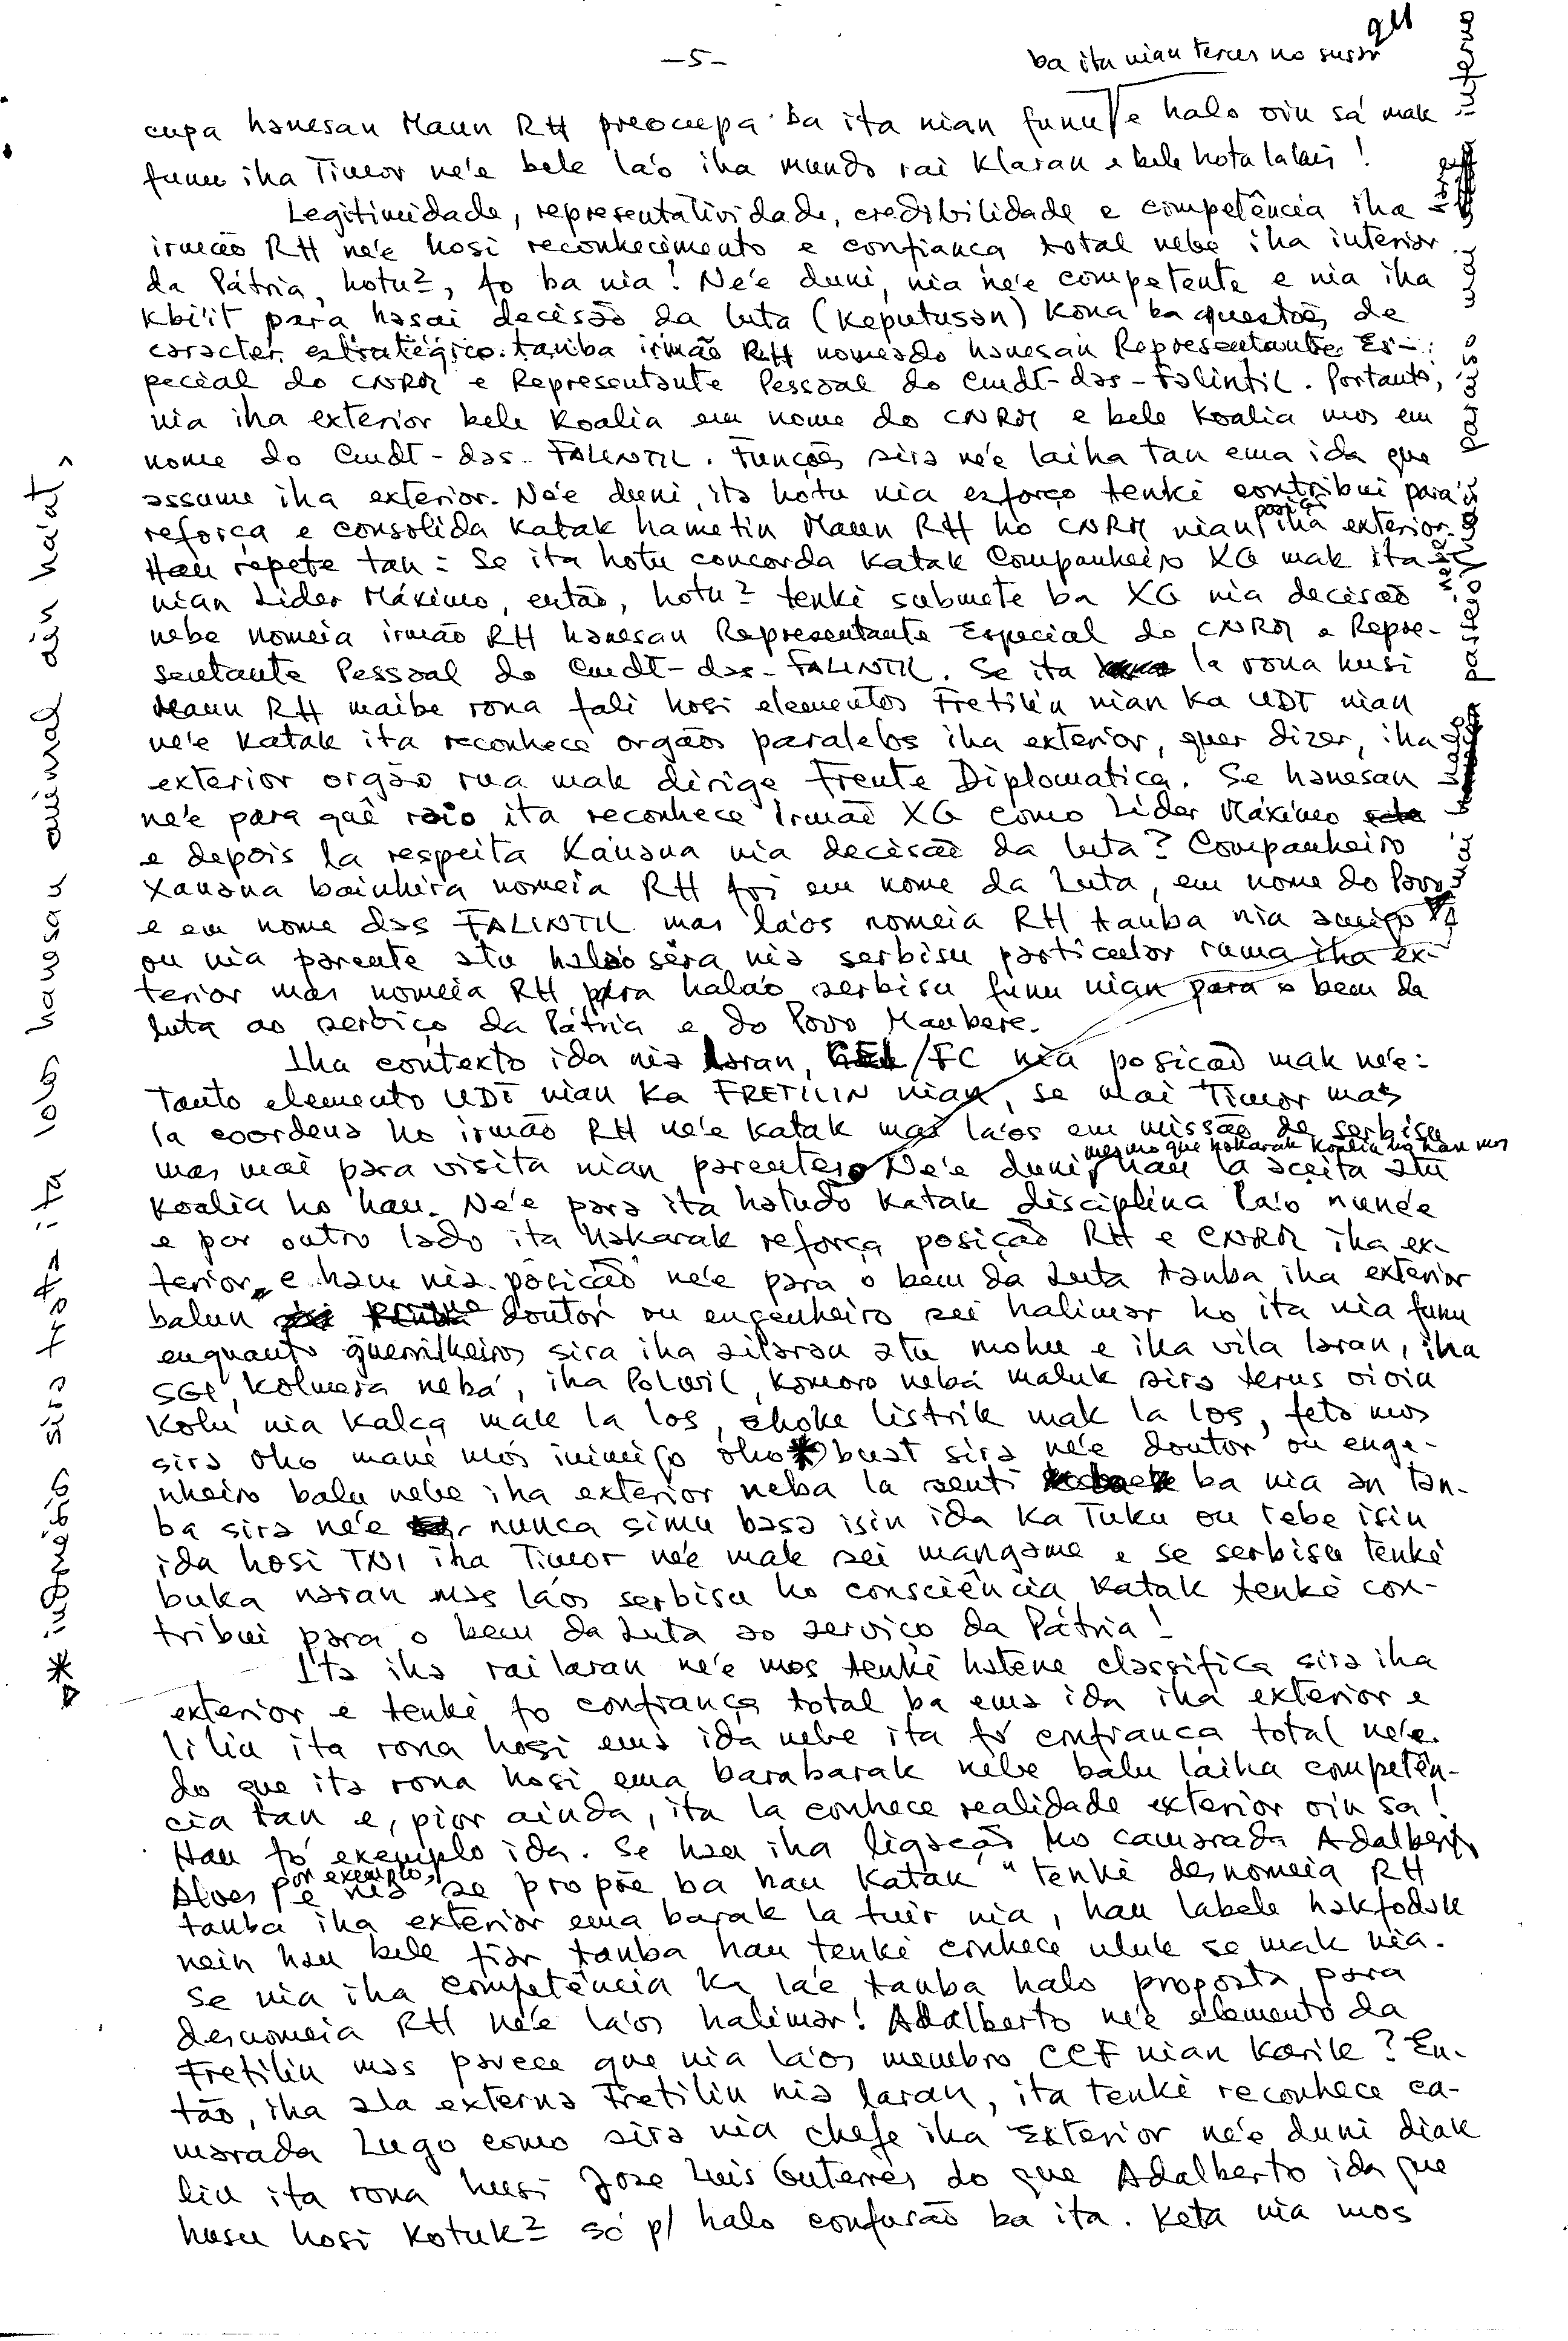 —5—
ba ita nian terus no susar
cupa hanesan Maun RH preocupa ba ita nian funu e halo oin sá mak
funu iha Timor ne'e bele la'o iha mundo rai klaran e bele hotu lalais !
Legitimidade, representatividade, credibilidade e competência iha
irmão RH ne'e hosi reconhecimento e confiança total nebe iha interior
da Pátria, hotu², fo ba nia! Ne'e duni, nia ne'e competente e nia iha
kbi'it para hasai decisão da luta (keputusan) kona ba questões de
caracter estratégico tanba irmão RH nomeado hanesan Representante Es-
pecial do CNRM e Representante Pessoal do Cmdt-das-Falintil. Portanto,
nia iha exterior bele koalia em nome do CNRM e bele koalia mos em
nome do Cmdt-das-FALINTIL. Funções sira ne'e laiha tan ema ida que
assume iha exterior. Ne'e duni, ita hotu nia esforço tenke contribui para
reforça e consolida katak hametin Maun RH ho CNRM nian posição iha exterior.
Hau repete tan: Se ita hotu concorda katak Companheiro XG mak ita
nian Lider Máximo, então, hotu² tenke submete ba XG nia decisão
nebe nomeia irmão RH hanesan Representante Especial do CNRM e Repre-
sentante Pessoal do Cmdt-das-FALINTIL. Se ita la rona husi
Maun RH maibe rona fali hosi elementos Fretilin nian ka UDT nian
ne'e katak ita reconhece orgãos paralelos iha exterior, quer dizer, iha
exterior orgão rua mak dirige Frente Diplomatica. Se hanesan
ne'e para quê raio ita reconhece Irmão XG como Lider Máximo
e depois la respeita Xanana nia decisão da luta? Companheiro
Xanana bainhira nomeia RH foi em nome da Luta, em nome do Povo
e em nome das FALINTIL mas la'os nomeia RH tanba nia amigo
ou nia parente atu hala'o sira nia serbisu particular ruma iha ex-
terior mas nomeia RH para hala'o serbisu funu nian para o bem da
Luta ao serbiço da Pátria e do Povo Maubere.
Iha contexto ida nia laran, /FC nia posição mak ne'e:
Tanto elemento UDT nian ka FRETILIN nian, se mai Timor mas
la coordena ho irmão RH ne'e katak mai la'os em missão de serbisu
mas mai para visita nian parentes. Ne'e duni, mesmo que hakarak koalia ho hau mos hau la aceita atu
koalia ho hau. Ne'e para ita hatudo katak disciplina la'o nune'e
e por outro lado ita hakarak reforça posição RH e CNRM iha ex-
terior e hau nia posição ne'e para o bem da Luta tanba iha exterior
balun doutor ou engenheiro sei halimar ho ita nia funu
enquanto guerrilheiros sira iha ailaran atu mohu e iha vila laran, iha
SGI, Kolmera neba', iha Polwil, Komoro nebá maluk sira terus oioin
Kolu nia kalça mak la los, choke listrik mak la los, feto mos
sira oho mane mós inimigo oho * buat sira ne'e doutor ou enge-
nheiro balu nebe iha exterior neba la senti ba nia an tan-
ba sira ne'e nunca simu basa isin ida ka Tuku ou tebe isin
ida hosi TNI iha Timor ne'e mak sei mangame e se serbisu tenke
buka naran mas la'os serbisu ho consciência katak tenke con-
tribui para o bem da Luta ao serviço da Pátria!
Ita iha rai laran ne'e mos tenke hatene classifica sira iha
exterior e tenke fo confiança total ba ema ida iha exterior e
liliu ita rona hosi ema ida nebe ita fó confiança total ne'e.
do que ita rona hosi ema barabarak nebe balu laiha competên-
cia tan e, pior ainda, ita la conhece realidade exterior oin sa!
Hau fó exemplo ida. Se hau iha ligação ho camarada Adalberto
Alves por exemplo, e nia se propõe ba hau katak "tenke desnomeia RH
tanba iha exterior ema barak la tuir nia, hau labele hakfodak
nein hau bele fiar tanba hau tenke conhece uluk se mak nia.
Se nia iha competência ka la'e tanba halo proposta para
desnomeia RH ne'e la'os halimar! Adalberto ne'e elemento da
Fretilin mas parece que nia la'os membro CCF nian karik? En-
tão, iha ala externa Fretilin nia laran, ita tenke reconhece ca-
marada Lugo como sira nia chefe iha Exterior ne'e duni diak
liu ita rona husi Jose Luis Guterres do que Adalberto ida que
husu hosi kotuk² só p/ halo confusão ba ita. Keta nia mos
* indonésio sira trata ita la'os hanesan animal ain ha'at,